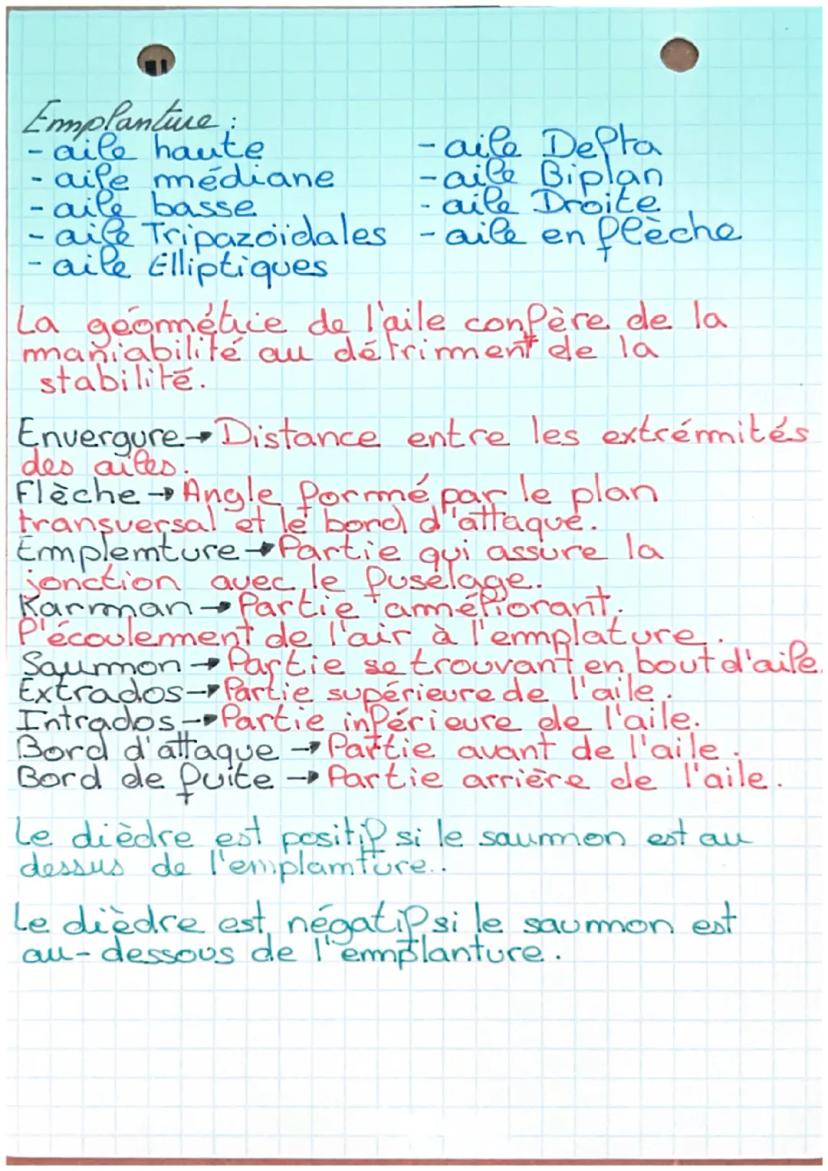 Emplanture :
- aile haute
- aile médiane
- aile basse
- aile Tripazoïdales
- aile Elliptiques
- aile Delta
- aile Biplan
- aile Droite
- aile en flèche
La géométrie de l'aile confère de la
maniabilité au détriment de la
stabilité.
Envergure → Distance entre les extrémités
des ailes.
Flèche → Angle formé par le plan
transversal et le bord d'attaque.
Emplemture → Partie qui assure la
jonction avec le fuselage.
Karman → Partie améliorant.
l'écoulement de l'air à l'emplature.
Saumon → Partie se trouvant en bout d'aile.
Extrados → Partie supérieure de l'aile.
Intrados → Partie inférieure de l'aile.
Bord d'attaque → Partie avant de l'aile.
Bord de fuite → Partie arrière de l'aile.
Le dièdre est positif si le saumon est au
dessus de l'emplamture..
Le dièdre est négatif si le saumon est
au-dessous de l'emplanture.